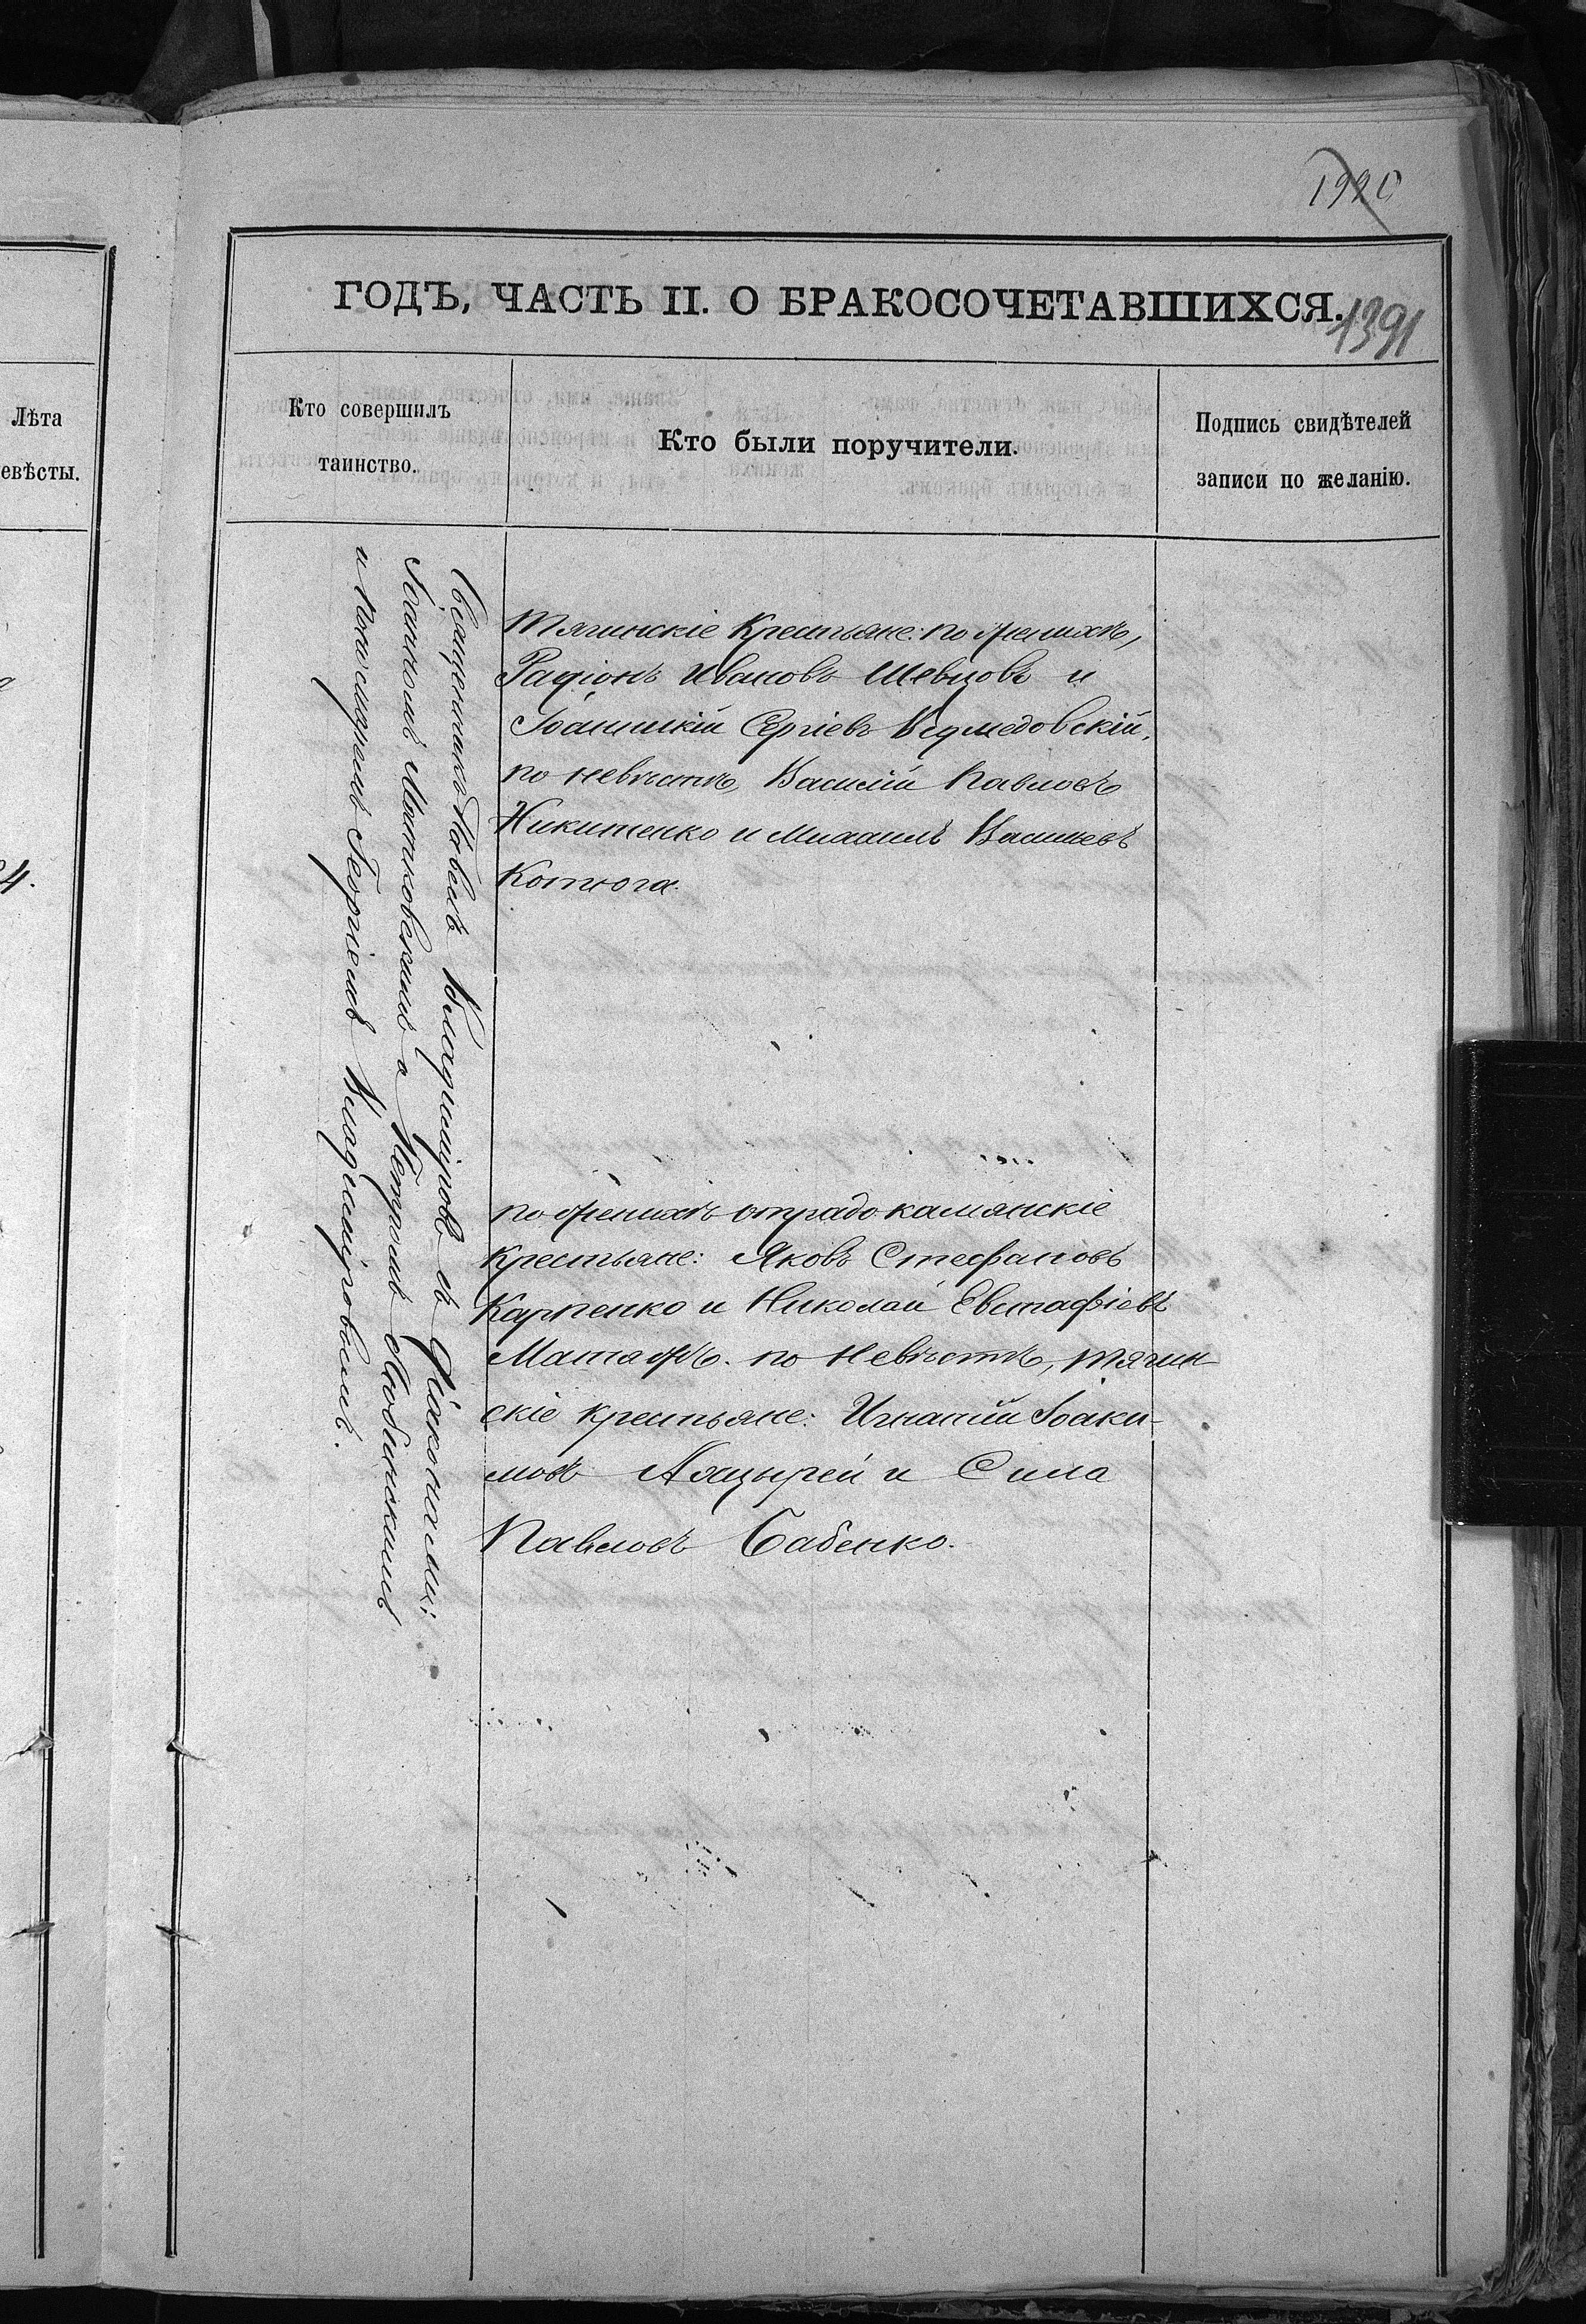 1920
ГОДЪ, ЧАСТЬ II. О БРАКОСОЧЕТАВШИХСЯ.
1391
Лѣта
евѣсты.
4.
Кто совершилъ
таинство.
Кто были поручители.
Подпись свидѣтелей
записи по желанію.
Священникъ Павелъ Владиміровъ съ Діаконами:
Іоанномъ Мытковскимъ и Петромъ Любинскимъ
и Псаломщ. Георгіемъ Владиміровымъ.
Тягинскіе крестьяне: по женихѣ,
Радіонъ Ивановъ Шевцовъ и
Іоанникій Сергіевъ Ведмедовскій,
по невѣстѣ, Василій Павловъ
Никитенко и Михаилъ Васильевъ
Котюга.
по женихѣ отрадокамянскіе
крестьяне: Яковъ Стефановъ
Карпенко и Николай Евстафіевъ
Маташъ. по невѣстѣ, тягин-
скіе крестьяне: Игнатій Іоаки-
мовъ Ляцырей и Сила
Павловъ Бабенко.